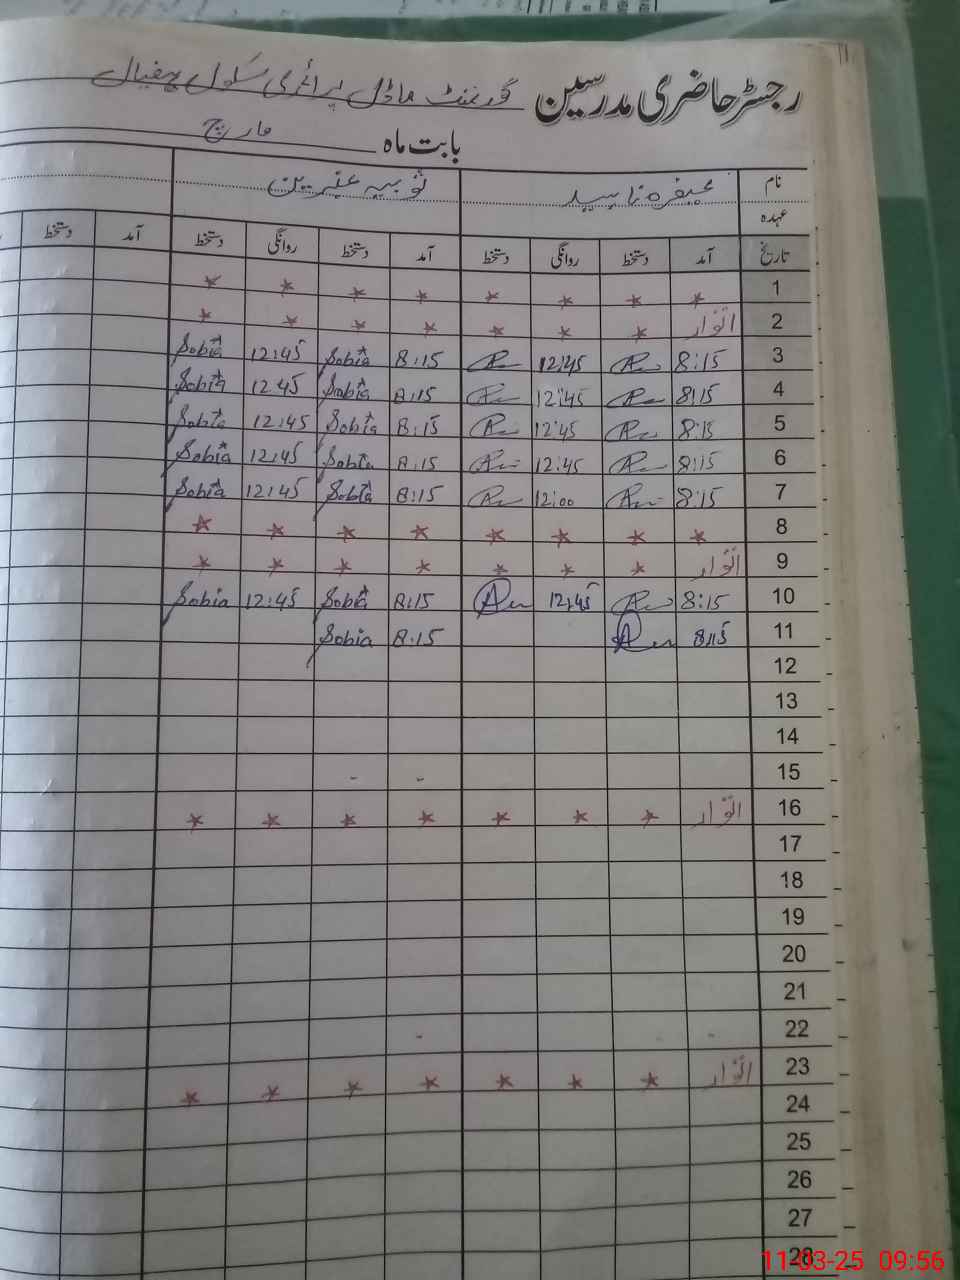 رجسٹر حاضری مدرسین گورنمنٹ ماڈل پرائمری سکول
بابت ماہ مارچ
نام ناہید ثوبیہ عنبرین
عہدہ
تاریخ آمد دستخط روانگی دستخط آمد دستخط روانگی دستخط آمد دستخط
1 * * * * * * * *
2 اتوار * * * * * * *
3 8:15 12:45 8:15 Sobia 12:45 Sobia
4 8:15 12:45 8:15 Sobia 12.45 Sobia
5 8:15 12:45 8:15 Sobia 12:45 Sobia
6 8:15 12:45 8:15 Sobia 12:45 Sobia
7 8:15 12:00 8:15 Sobia 12:45 Sobia
8 * * * * * * * *
9 اتوار * * * * * * *
10 8:15 12:45 8:15 Sobia 12:45 Sobia
11 8:15 8:15 Sobia
12
13
14
15
16 اتوار * * * * * * *
17
18
19
20
21
22
23 اتوار * * * * * * *
24
25
26
27
28
11-03-25 09:56